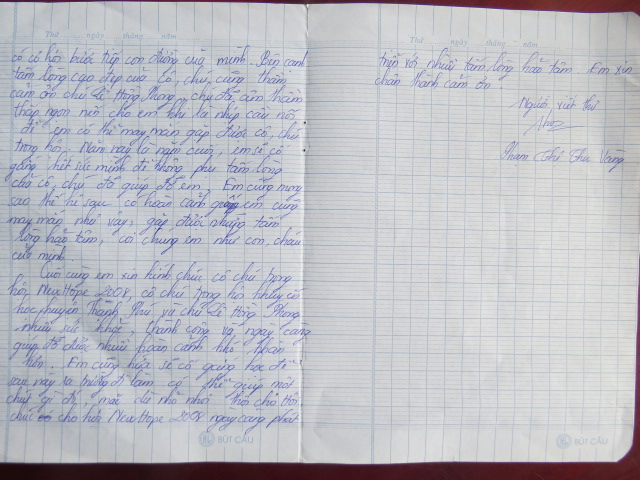 Thứ ngày tháng năm
có cơ hội bước tiếp con đường của mình. Bên cạnh
tấm lòng cao đẹp của cô, chú, cũng thầm
cảm ơn chú Lê Hồng Phong, chú đã âm thầm
thắp ngọn nến cho em hay là nhịp cầu nối
để em có thể may mắn gặp được cô, chú
trong hội. Năm nay là năm cuối, em sẽ cố
gắng hết sức mình để không phụ tấm lòng
của cô, chú đã giúp đỡ em. Em cũng mong
sao thế hệ sau có hoàn cảnh giống em cũng
may mắn như vậy, gặp được những tấm
lòng hảo tâm, coi chúng em như con, cháu
của mình.
Cuối cùng em xin kính chúc cô chú trong
hội NewHope 2008, cô chú trong hội khuyến
học huyện Thạnh Phú và chú Lê Hồng Phong
nhiều sức khỏe, thành công và ngày càng
giúp đỡ được nhiều hoàn cảnh khó khăn
hơn. Em cũng hứa sẽ cố gắng học để
sau này ra trường đi làm có thể giúp một
chút gì đó, mặc dù nhỏ nhỏ thôi cho
chúc cho hội NewHope 2008 ngày càng phát
BÚT CẦU
Thứ ngày tháng năm
triển với nhiều tấm lòng hảo tâm. Em xin
chân thành cảm ơn.
Người viết thư
Phạm Thị Thu Vàng
BÚT CẦU